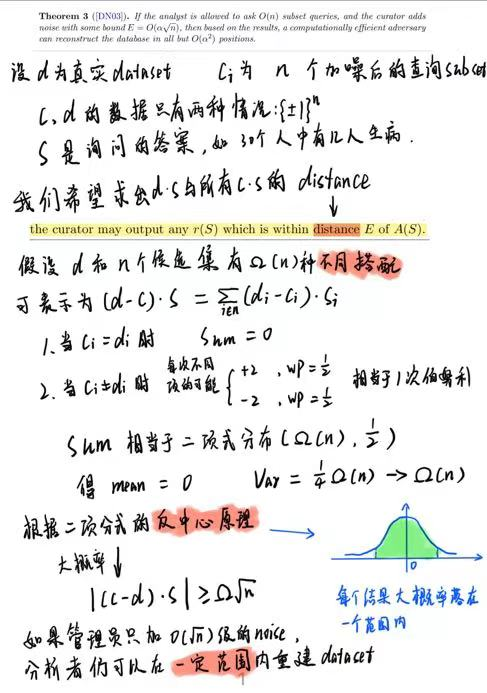 Theorem 3 ([DN03]). If the analyst is allowed to ask O(n) subset queries, and the curator adds
noise with some bound E = O(α√n), then based on the results, a computationally efficient adversary
can reconstruct the database in all but O(α²) positions.
设 d 为真实 dataset Ci 为 n 个加噪后的查询 subset
C, d 的数据只有两种情况:{±1}ⁿ
S 是询问的答案, 如 30个人中有几人生病.
我们希望求出 d·S 与所有 C·S 的 distance
↓
the curator may output any r(S) which is within distance E of A(S).
假设 d 和 n 个候选集有 Ω(n) 种不同搭配
可表示为 (d-C)·S = ∑i∈n (di-Ci)·Si
1. 当 Ci = di 时 Sum = 0
2. 当 Ci ≠ di 时 每次不同项的可能 { +2, wp = 1/2
-2, wp = 1/2 相当于1次伯努利
Sum 相当于二项式分布 (Ω(n), 1/2)
得 mean = 0 Var = 1/4 Ω(n) → Ω(n)
根据二项分式的反中心原理 →
大概率 ↓
|(C-d)·S| ≥ Ω√n
0
每个结果大概率落在
一个范围内
如果管理员只加 O(√n) 级的 noise,
分析者仍可以在一定范围内重建 dataset